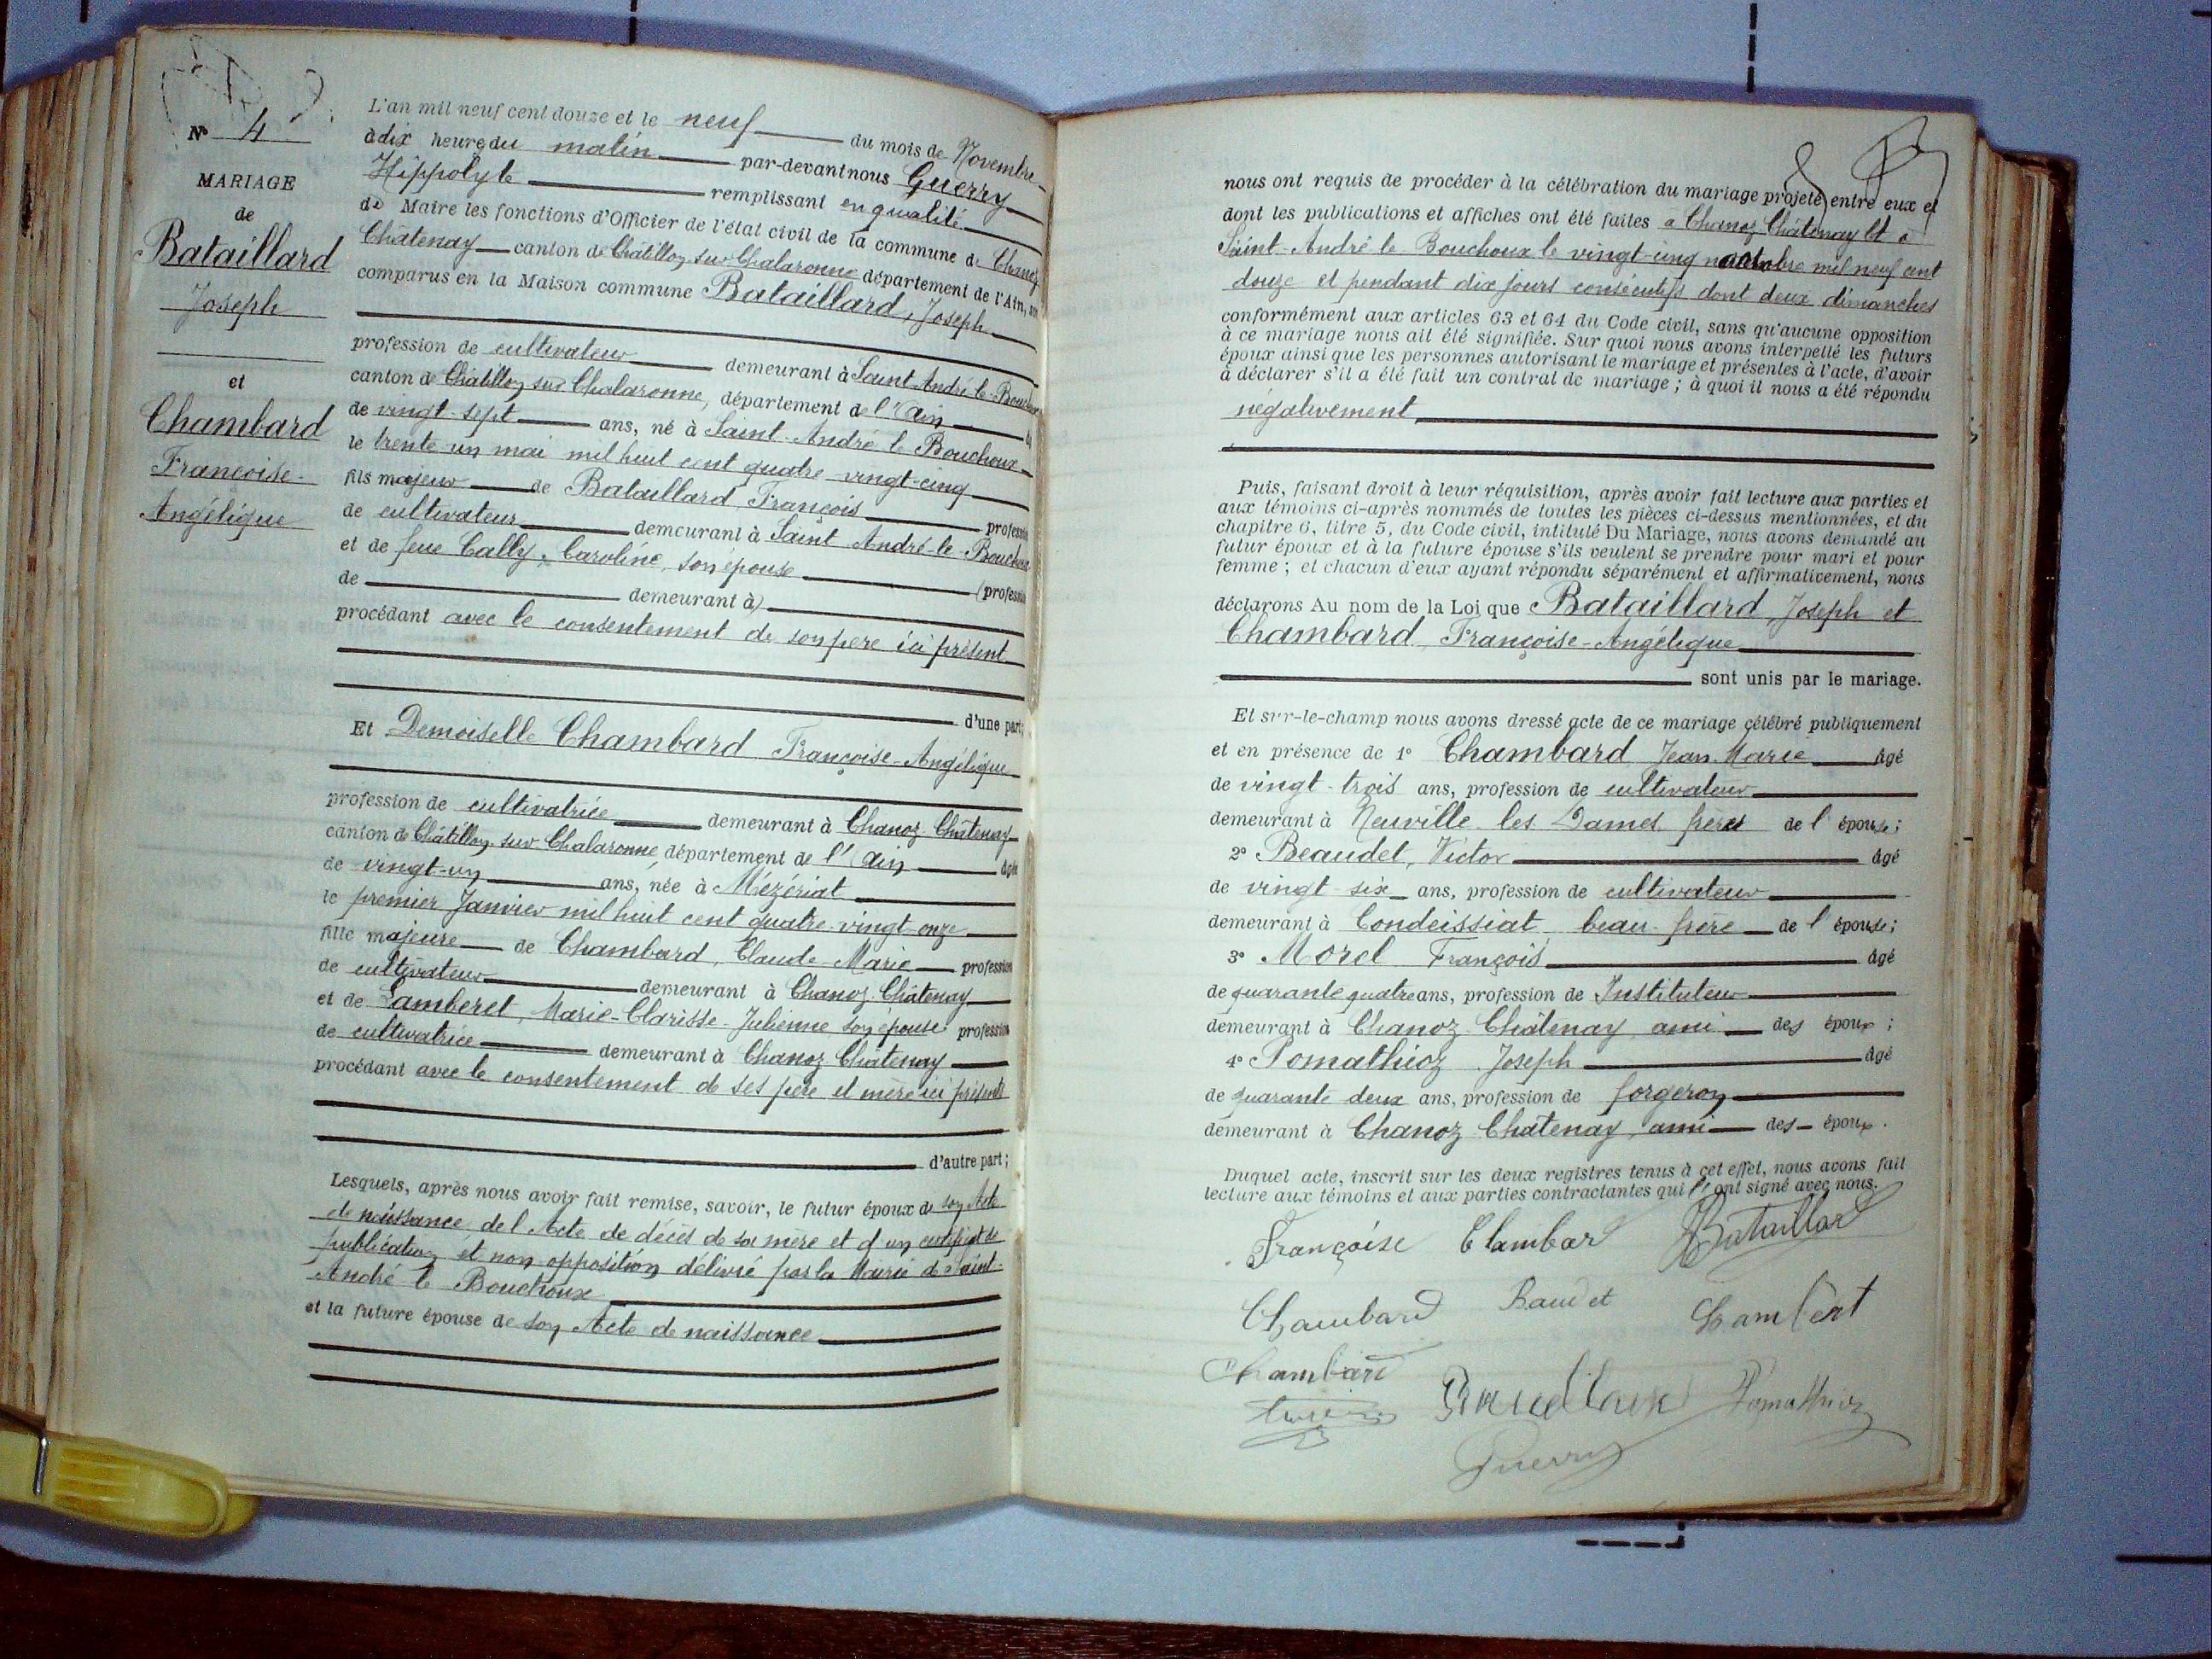 N° 4
MARIAGE
de
Bataillard
Joseph
et
Chambard
Françoise-
Angélique
L'an mil neuf cent douze et le neuf du mois de Novembre
à dix heures du matin par-devant nous Guerry
Hippolyte remplissant en qualité
de Maire les fonctions d'Officier de l'état civil de la commune de Chanoz
Châtenay canton de Châtillon sur Chalaronne département de l'Ain, sont
comparus en la Maison commune Bataillard, Joseph
profession de cultivateur demeurant à Saint André-le-Bouchoux
canton de Châtillon sur Chalaronne, département de l'Ain
de vingt-sept ans, né à Saint-André le Bouchoux
le trente un mai mil huit cent quatre-vingt-cinq
fils majeur de Bataillard, François profession
de cultivateur demeurant à Saint André-le-Bouchoux
et de feue Cally, Caroline, son épouse (profession
de demeurant à)
procédant avec le consentement de son père ici présent
d'une part;
Et Demoiselle Chambard Françoise-Angélique
profession de cultivatrice demeurant à Chanoz-Châtenay
canton de Châtillon sur Chalaronne, département de l'Ain âgée
de vingt-un ans, née à Mézériat
le premier Janvier mil huit cent quatre-vingt-onze
fille majeure de Chambard, Claude-Marie profession
de cultivateur demeurant à Chanoz-Châtenay
et de Lamberet, Marie-Clarisse-Julienne son épouse profession
de cultivatrice demeurant à Chanoz Châtenay
procédant avec le consentement de ses père et mère ici présents
d'autre part;
Lesquels, après nous avoir fait remise, savoir, le futur époux de son Acte
de naissance, de l'Acte de décès de sa mère et d'un certificat de
publication et non opposition délivré par la Mairie de Saint-
André le Bouchoux
et la future épouse de son Acte de naissance
nous ont requis de procéder à la célébration du mariage projeté entre eux et
dont les publications et affiches ont été faites à Chanoz Châtenay et à
Saint-André le Bouchoux le vingt-cinq octobre mil neuf cent
douze et pendant dix jours consécutifs dont deux dimanches
conformément aux articles 63 et 64 du Code civil, sans qu'aucune opposition
à ce mariage nous ait été signifiée. Sur quoi nous avons interpellé les futurs
époux ainsi que les personnes autorisant le mariage et présentes à l'acte, d'avoir
à déclarer s'il a été fait un contrat de mariage; à quoi il nous a été répondu
négativement
Puis, faisant droit à leur réquisition, après avoir fait lecture aux parties et
aux témoins ci-après nommés de toutes les pièces ci-dessus mentionnées, et du
chapitre 6, titre 5, du Code civil, intitulé Du Mariage, nous avons demandé au
futur époux et à la future épouse s'ils veulent se prendre pour mari et pour
femme; et chacun d'eux ayant répondu séparément et affirmativement, nous
déclarons Au nom de la Loi que Bataillard, Joseph et
Chambard, Françoise-Angélique
sont unis par le mariage.
Et sur-le-champ nous avons dressé acte de ce mariage célébré publiquement
et en présence de 1° Chambard Jean-Marie âgé
de vingt-trois ans, profession de cultivateur
demeurant à Neuville-les Dames frère de l'épouse;
2° Beaudet, Victor âgé
de vingt six ans, profession de cultivateur
demeurant à Condeissiat beau-frère de l'épouse;
3° Morel François âgé
de quarante quatre ans, profession de Instituteur
demeurant à Chanoz-Châtenay, ami des époux;
4° Pomathioz Joseph âgé
de quarante deux ans, profession de forgeron
demeurant à Chanoz Châtenay, ami des époux.
Duquel acte, inscrit sur les deux registres tenus à cet effet, nous avons fait
lecture aux témoins et aux parties contractantes qui l'ont signé avec nous.
Françoise Chambard Bataillard
Chambard Baudet
Chambard
Pomathioz
Guerry